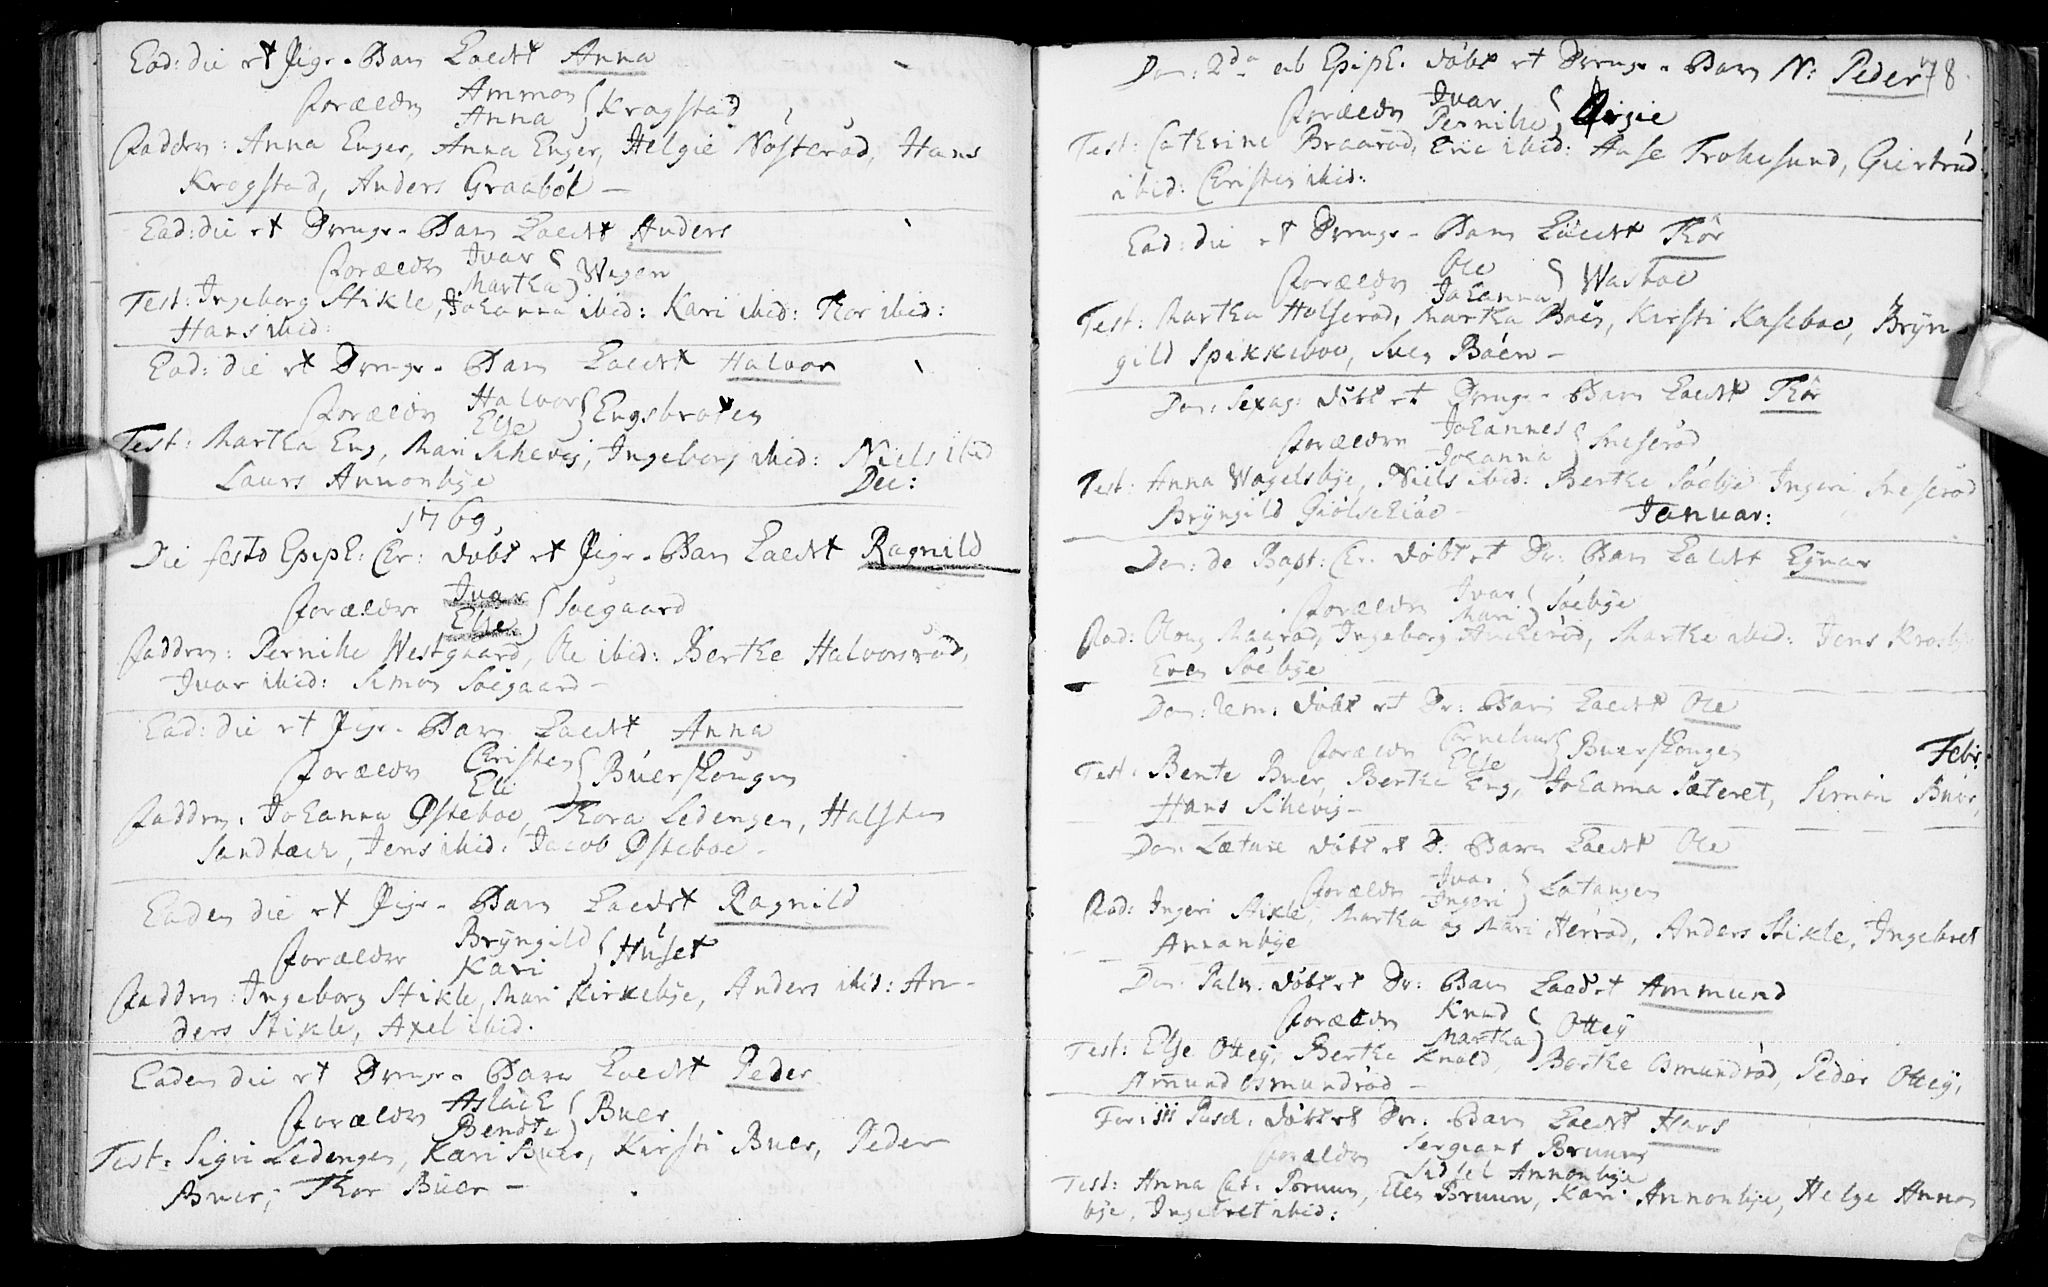 Ead: die et Pige-Barn kaldt Anna
Forældre Ammon Anna Krogstad
Faddere: Anna Enger, Anna Enger, Helgie Nösteröd, Hans
Krogstad, Anders Graaböl —
Ead: die et Drenge-Barn kaldt Anders
Forældre Ivar Martha Wegen
Test: Ingeborg Stikle, Johanna ibid: Kari ibid: Thor ibid:
Hans ibid:
Ead: die et Drenge-Barn kaldt Halvor
Forældre Halvor Else Engsbroten
Test: Martha Eng, Mari Schevig, Ingeborg ibid: Niels ibid
Laurs Annonbye Dec:
1769,
Die festo Epiph: Chr: döbt et Pige-Barn kaldt Ragnild
Forældre Ivar Else Soegaard
Faddere: Pernille Westgaard, Ole ibid: Berthe Halvorsröd,
Ivar ibid: Simon Soegaard —
Ead: die et Pige-Barn kaldt Anna
Forældre Christen Eli Buerskougen
Faddere: Johanna Østeboe, Thora Ledengen, Halsten
Sandbæch, Jens ibid: Jacob Østeboe —
Eadem die et Pige-Barn kaldt Ragnild
Forældre Bryngild Kari Huset
Faddere: Ingeborg Stikle, Mari Kirkebye, Anders ibid: An-
ders Stikle, Axel ibid.
Eadem die et Drenge-Barn kaldt Peder
Forældre Aslach Bendte Buer
Test: Sigri Ledengen, Kari Buer, Kirsti Buer, Peder
Buer, Thor Buer —
Dom: 2da ab Epiph. döbt et Drenge-Barn N: Peder 78
Forældre Ivar Pernille
Test: Catherine Braaröd, Eric ibid: Aase Trollesund, Giertrud
ibid: Christen ibid:
Ead: die et Drenge-Barn kaldt Thor
Forældre Ole Johanna Wasboe
Test: Martha Holseröd, Martha Boën, Kirsti Kaseboe, Bryn-
gild Spikkeboe, Suen Boën —
Dom: Sexag: döbt et Drenge-Barn kaldt Thor
Forældre Johannes Johanna Sneseröd
Test: Anna Wogelsbye, Niels ibid: Berthe Söebye Ingeri Sneseröd
Bryngild — Januar:
Dom: de Bapt: Chr. döbt et Dr: Barn kaldt Eynar
Forældre Ivar Mari Söebye
Fad: Maaröd, Ingeborg Hucheröd, Marthe ibid: Jens
Even Söebye
Dom: Rem: döbt et Dr: Barn kaldt Ole
Forældre Cornelius Else Buerskougen Febr:
Test: Bente Buer, Berthe Eng, Johanna Sæteret, Simon Buer,
Hans Schevig —
Dom Lætare döbt et D: Barn kaldt Ole
Forældre Ivar Ingeri Latangen
Fad: Ingeri Stikle, Martha og Mari Herröd, Anders Stikle, Ingebret
Annanbye
Dom: Palm: döbt et Dr: Barn kaldt Ammund
Forældre Knud Martha Ottey
Test: Else Ottey, Berthe Knold, Berthe Osmundröd, Peder Ottey,
Amund Osmundröd —
Fer: iii Pasch: döbt et Dr: Barn kaldt Hans
Forældre Sergiant Bruun Sidsel Annonbye
Test: Anna Cat: Bruun, Elen Bruun, Kari Annonbye, Helge Annon
bye, Ingebret ibid: